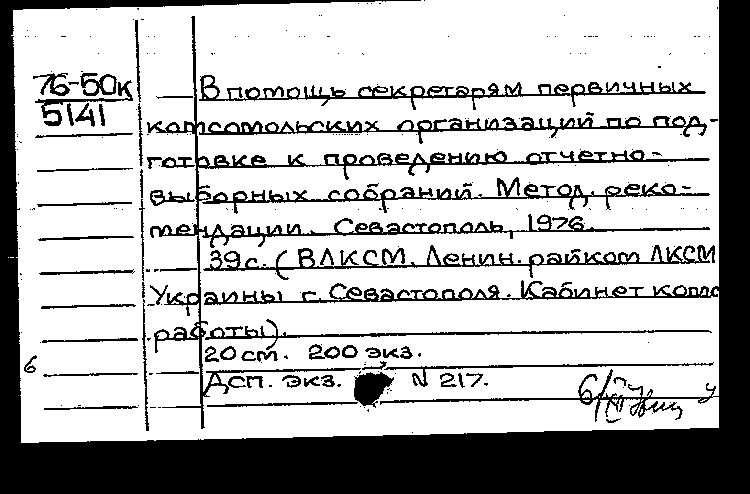 76-50к
5141
В помощь секретарям первичных
комсомольских организаций по под-
готовке к проведению отчетно-
выборных собраний. Метод. реко-
мендации. Севастополь, 1976.
39с. (ВЛКСМ. Ленин. райком ЛКСМ
Украины г. Севастополя. Кабинет комс
работы).
20 см. 200 экз.
Дсп. экз. N 217.
6
6/